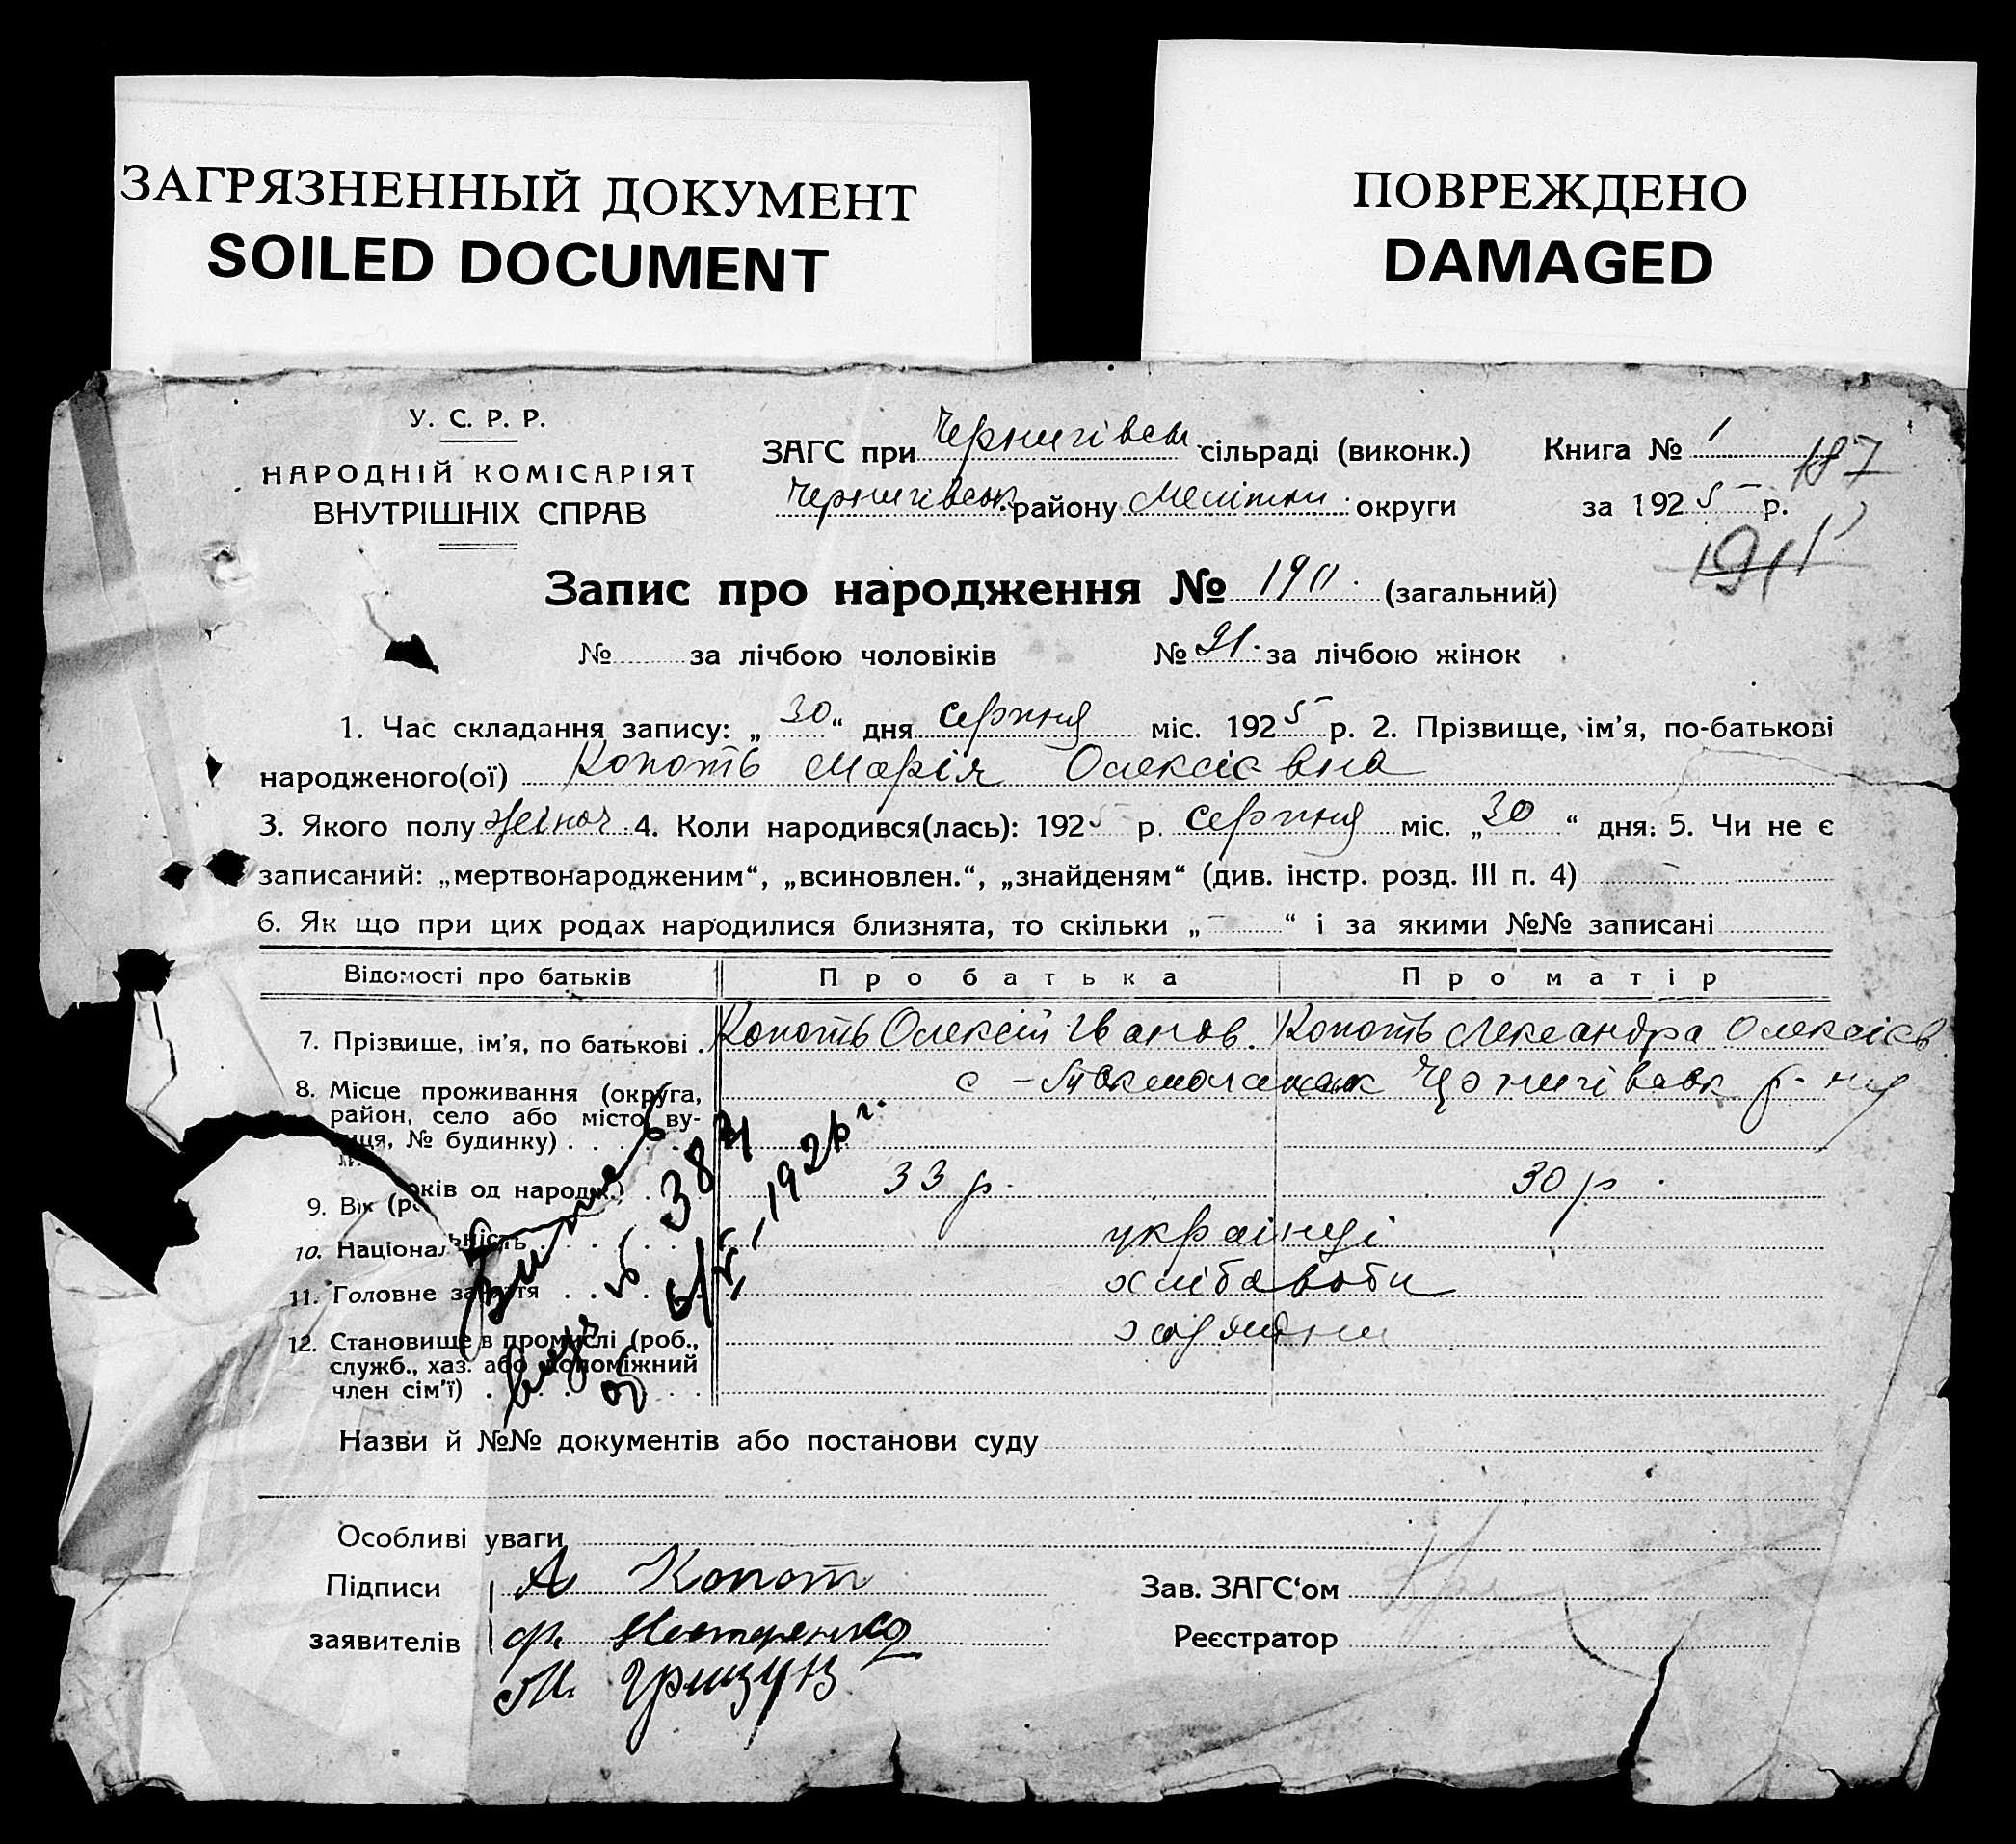 ЗАГРЯЗНЕННЫЙ ДОКУМЕНТ
SOILED DOCUMENT
ПОВРЕЖДЕНО
DAMAGED
У. С. Р. Р.
НАРОДНІЙ КОМІСАРІЯТ
ВНУТРІШНІХ СПРАВ
ЗАГС при Чернигівськ. сільраді (виконк.)
Чернигівськ. району Меліт. округи
Книга № 1
187
за 1925 р.
191
Запис про народження № 190. (загальний)
№ за лічбою чоловіків № 91. за лічбою жінок
1. Час складання запису: „30“ дня серпня міс. 1925 р. 2. Прізвище, ім’я, по-батькові
народженого(ої) Копоть Марія Олексієвна
3. Якого полу жіноч. 4. Коли народився(лась): 1925 р. серпня міс. „30“ дня. 5. Чи не є
записаний: „мертвонародженим“, „всиновлен.“, „знайденям“ (див. інстр. розд. III п. 4) –
6. Як що при цих родах народилися близнята, то скільки „–“ і за якими №№ записані
Відомості про батьків Про батька Про матір
7. Прізвище, ім’я, по батькові . Копоть Олексій Іванов. Копоть Лександра Олексієв
8. Місце проживання (округа,
район, село або місто, ву-
лиця, № будинку) . . . . .
с – Чернигівськ р-ну
9. Вік (років од народж.) . . 33 р. 30 р.
10. Національність . . . . українці
11. Головне заняття . . . . хлібороби
12. Становище в промислі (роб.,
служб., хаз. або допоміжний
член сім’ї) . . . . . .
387
6/V, 1926 г.
Назви й №№ документів або постанови суду
Особливі уваги
Підписи А Копот
заявителів Ф. Нестеренко
М. Гризун
Зав. ЗАГС‘ом
Реєстратор